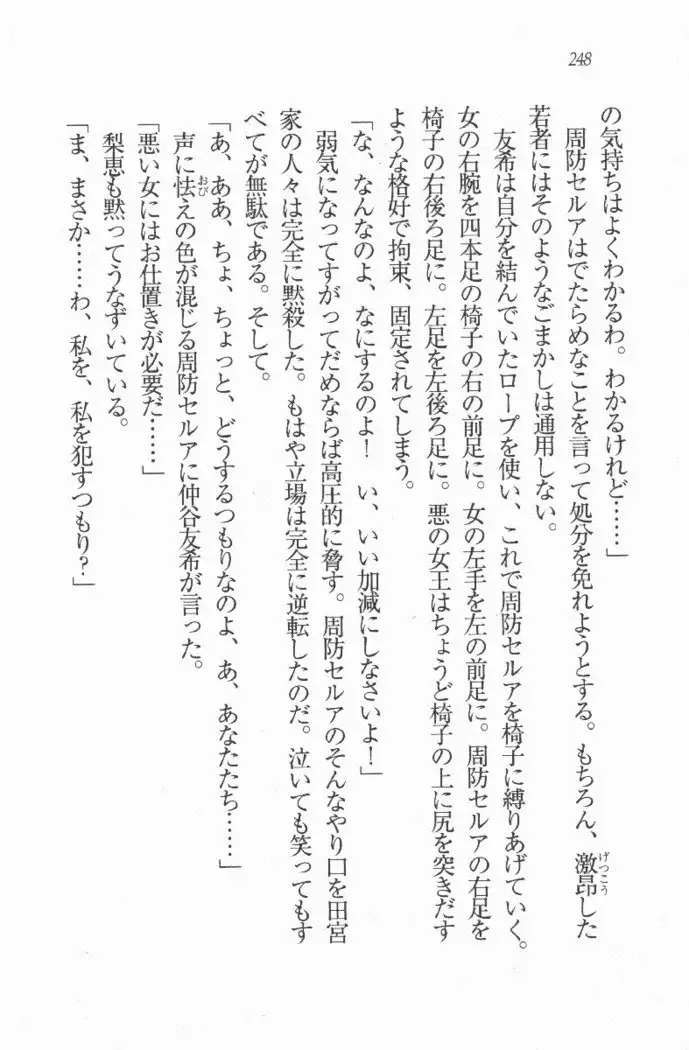 248
の気持ちはよくわかるわ。わかるけれど……」
　周防セルアはでたらめなことを言って処分を免れようとする。もちろん、激昂した
げつこう
若者にはそのようなごまかしは通用しない。
　友希は自分を結んでいたロープを使い、これで周防セルアを椅子に縛りあげていく。
女の右腕を四本足の椅子の右の前足に。女の左手を左の前足に。周防セルアの右足を
椅子の右後ろ足に。左足を左後ろ足に。悪の女王はちょうど椅子の上に尻を突きだす
ような格好で拘束、固定されてしまう。
「な、なんなのよ、なにするのよ！　い、いい加減にしなさいよ！」
　弱気になってすがってだめならば高圧的に脅す。周防セルアのそんなやり口を田宮
家の人々は完全に黙殺した。もはや立場は完全に逆転したのだ。泣いても笑ってもす
べてが無駄である。そして。
「あ、ああ、ちょ、ちょっと、どうするつもりなのよ、あ、あなたたち……」
　声に怯えの色が混じる周防セルアに仲谷友希が言った。
おび
「悪い女にはお仕置きが必要だ……」
　梨恵も黙ってうなずいている。
「ま、まさか……わ、私を、私を犯すつもり？」